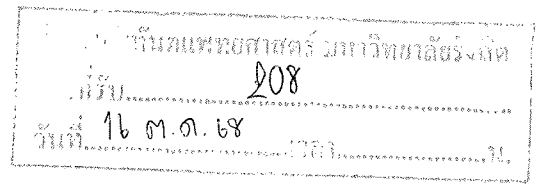 ทันตแพทยศาสตร์ มหาวิทยาลัยรังสิต
ที่รับ 208
วันที่ ต.ค. 68 เวลา น.